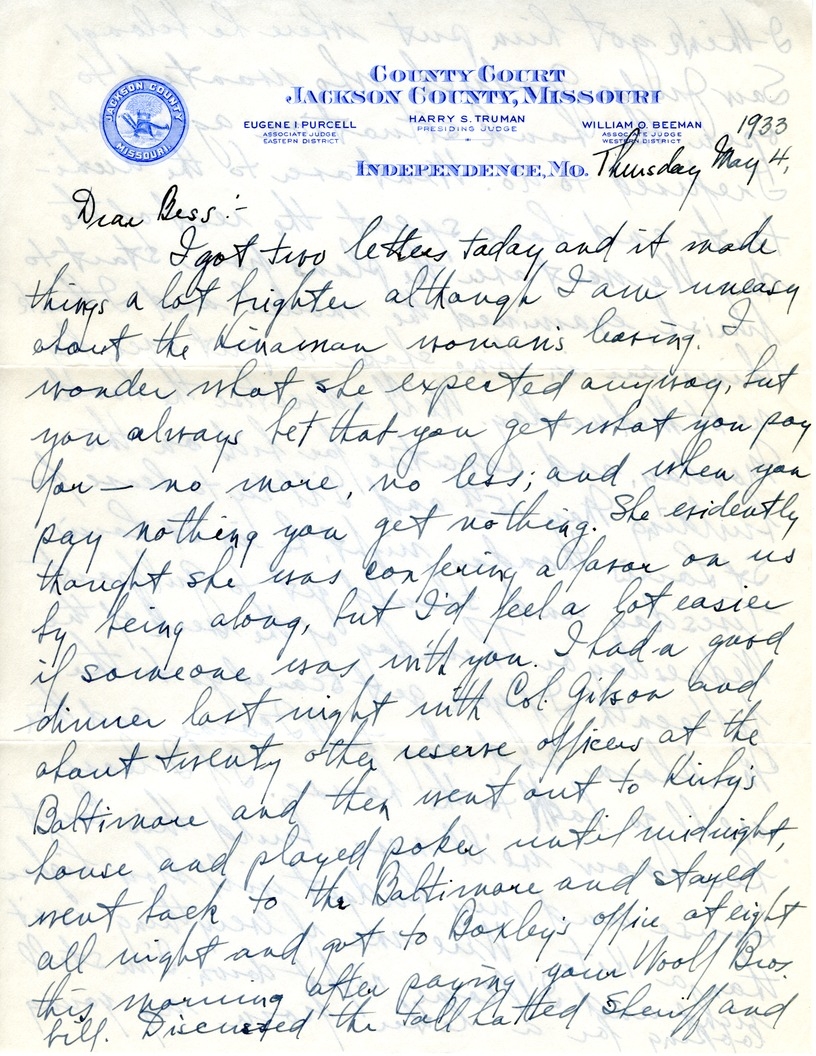 COUNTY COURT
JACKSON COUNTY, MISSOURI
JACKSON COUNTY
MISSOURI
EUGENE I. PURCELL
ASSOCIATE JUDGE
EASTERN DISTRICT
HARRY S. TRUMAN
PRESIDING JUDGE
WILLIAM O. BEEMAN
ASSOCIATE JUDGE
WESTERN DISTRICT
1933
INDEPENDENCE, MO. Thursday May 4,
Dear Bess:-
I got two letters today and it made
things a lot brighter although I am uneasy
about the Hinaman woman's leaving. I
wonder what she expected anyway, but
you always bet that you get what you pay
for — no more, no less; and when you
pay nothing you get nothing. She evidently
thought she was confering a favor on us
by being along, but I'd feel a lot easier
if someone was with you. I had a good
dinner last night with Col. Gibson and
about twenty other reserve officers at the
Baltimore and then went out to Kirby's
house and played poker until midnight,
went back to the Baltimore and stayed
all night and got to Boxley's office at eight
this morning after paying your Woolf Bros.
bill. Discussed the tall hatted Sheriff and